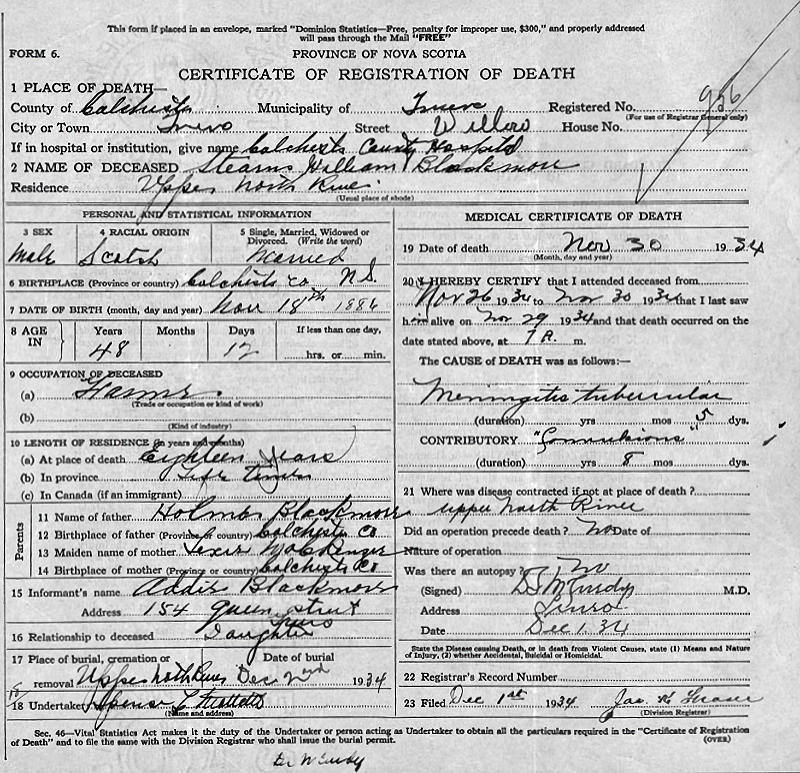 This form if placed in an envelope, marked "Dominion Statistics—Free, penalty for improper use, $300," and properly addressed
will pass through the Mail "FREE"
FORM 6.
PROVINCE OF NOVA SCOTIA
CERTIFICATE OF REGISTRATION OF DEATH
1 PLACE OF DEATH—
County of Colchester Municipality of Truro Registered No. 956
(For use of Registrar General only)
City or Town Truro Street Willow House No.
If in hospital or institution, give name Colchester County Hospital
2 NAME OF DECEASED Stearns William Blackmore
Residence Upper North River
(Usual place of abode)
PERSONAL AND STATISTICAL INFORMATION
3 SEX 4 RACIAL ORIGIN 5 Single, Married, Widowed or
Divorced. (Write the word)
Male Scotch Married
6 BIRTHPLACE (Province or country) Colchester Co N.S.
7 DATE OF BIRTH (month, day and year) Nov 18th 1886
8 AGE IN Years Months Days If less than one day,
48 12 hrs. or min.
9 OCCUPATION OF DECEASED
(a) Farmer
(Trade or occupation or kind of work)
(b)
(Kind of industry)
10 LENGTH OF RESIDENCE (in years and months)
(a) At place of death Eighteen years
(b) In province Life
(c) In Canada (if an immigrant)
Parents
11 Name of father Blackmore
12 Birthplace of father (Province or country) Colchester Co
13 Maiden name of mother
14 Birthplace of mother (Province or country) Colchester Co
15 Informant's name Addie Blackmore
Address 154 Queen Street
Truro
16 Relationship to deceased Daughter
17 Place of burial, cremation or Date of burial
removal Upper North River Dec 2nd 1934
18 Undertaker
(Name and address)
MEDICAL CERTIFICATE OF DEATH
19 Date of death Nov 30 1934
(Month, day and year)
20 I HEREBY CERTIFY that I attended deceased from
Nov 26 1934 to Nov 30 1934 that I last saw
him alive on Nov 29 1934 and that death occurred on the
date stated above, at 7 A. m.
The CAUSE OF DEATH was as follows:—
Meningitis tubercular
(duration) yrs mos 5 dys.
CONTRIBUTORY "Convulsions"
(duration) yrs 8 mos dys.
21 Where was disease contracted if not at place of death?
Upper North River
Did an operation precede death? No Date of
Nature of operation
Was there an autopsy? No
(Signed) M.D.
Address Truro
Date Dec 1. 34
State the Disease causing Death, or in death from Violent Causes, state (1) Means and Nature
of Injury, (2) whether Accidental, Suicidal or Homicidal.
22 Registrar's Record Number
23 Filed Dec 1st 1934 Jas. Fraser
(Division Registrar)
Sec. 46—Vital Statistics Act makes it the duty of the Undertaker or person acting as Undertaker to obtain all the particulars required in the "Certificate of Registration
of Death" and to file the same with the Division Registrar who shall issue the burial permit.
(OVER)